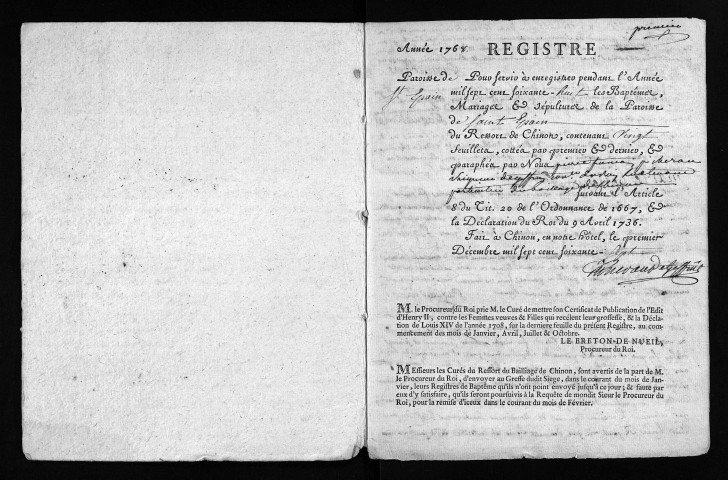 premier
Année 1768 REGISTRE
Paroisse de
St Epain
Pour servir à enregistrer pendant l'Année
mil sept cent soixante-huit les Baptêmes,
Mariages & Sépultures de la Paroisse
de Saint Epain
du Ressort de Chinon, contenant Vingt
feuillets, cottés par premier & dernier, &
paraphés par Nous pierre
Seigneur
particulier au bailliage de Chinon
suivant l'Article
8 du Tit. 20 de l'Ordonnance de 1667, &
la Déclaration du Roi du 9 Avril 1736.
Fait à Chinon, en notre hôtel, le premier
Décembre mil sept cent soixante-sept
M. le Procureur du Roi prie M. le Curé de mettre son Certificat de Publication de l'Edit
d'Henry II, contre les Femmes veuves & Filles qui recélent leur grossesse, & la Décla-
ration de Louis XIV de l'année 1708, sur la derniere feuille du présent Registre, au com-
mencement des mois de Janvier, Avril, Juillet & Octobre.
LE BRETON-DE NUEIL,
Procureur du Roi.
Messieurs les Curés du Ressort du Bailliage de Chinon, sont avertis de la part de M.
le Procureur du Roi, d'envoyer au Greffe dudit Siege, dans le courant du mois de Jan-
vier, leurs Registres de Baptême qu'ils n'ont point envoyé jusqu'à ce jour; & faute par
eux d'y satisfaire, qu'ils seront poursuivis à la Requête de mondit Sieur le Procureur du
Roi, pour la remise d'iceux dans le courant du mois de Février.